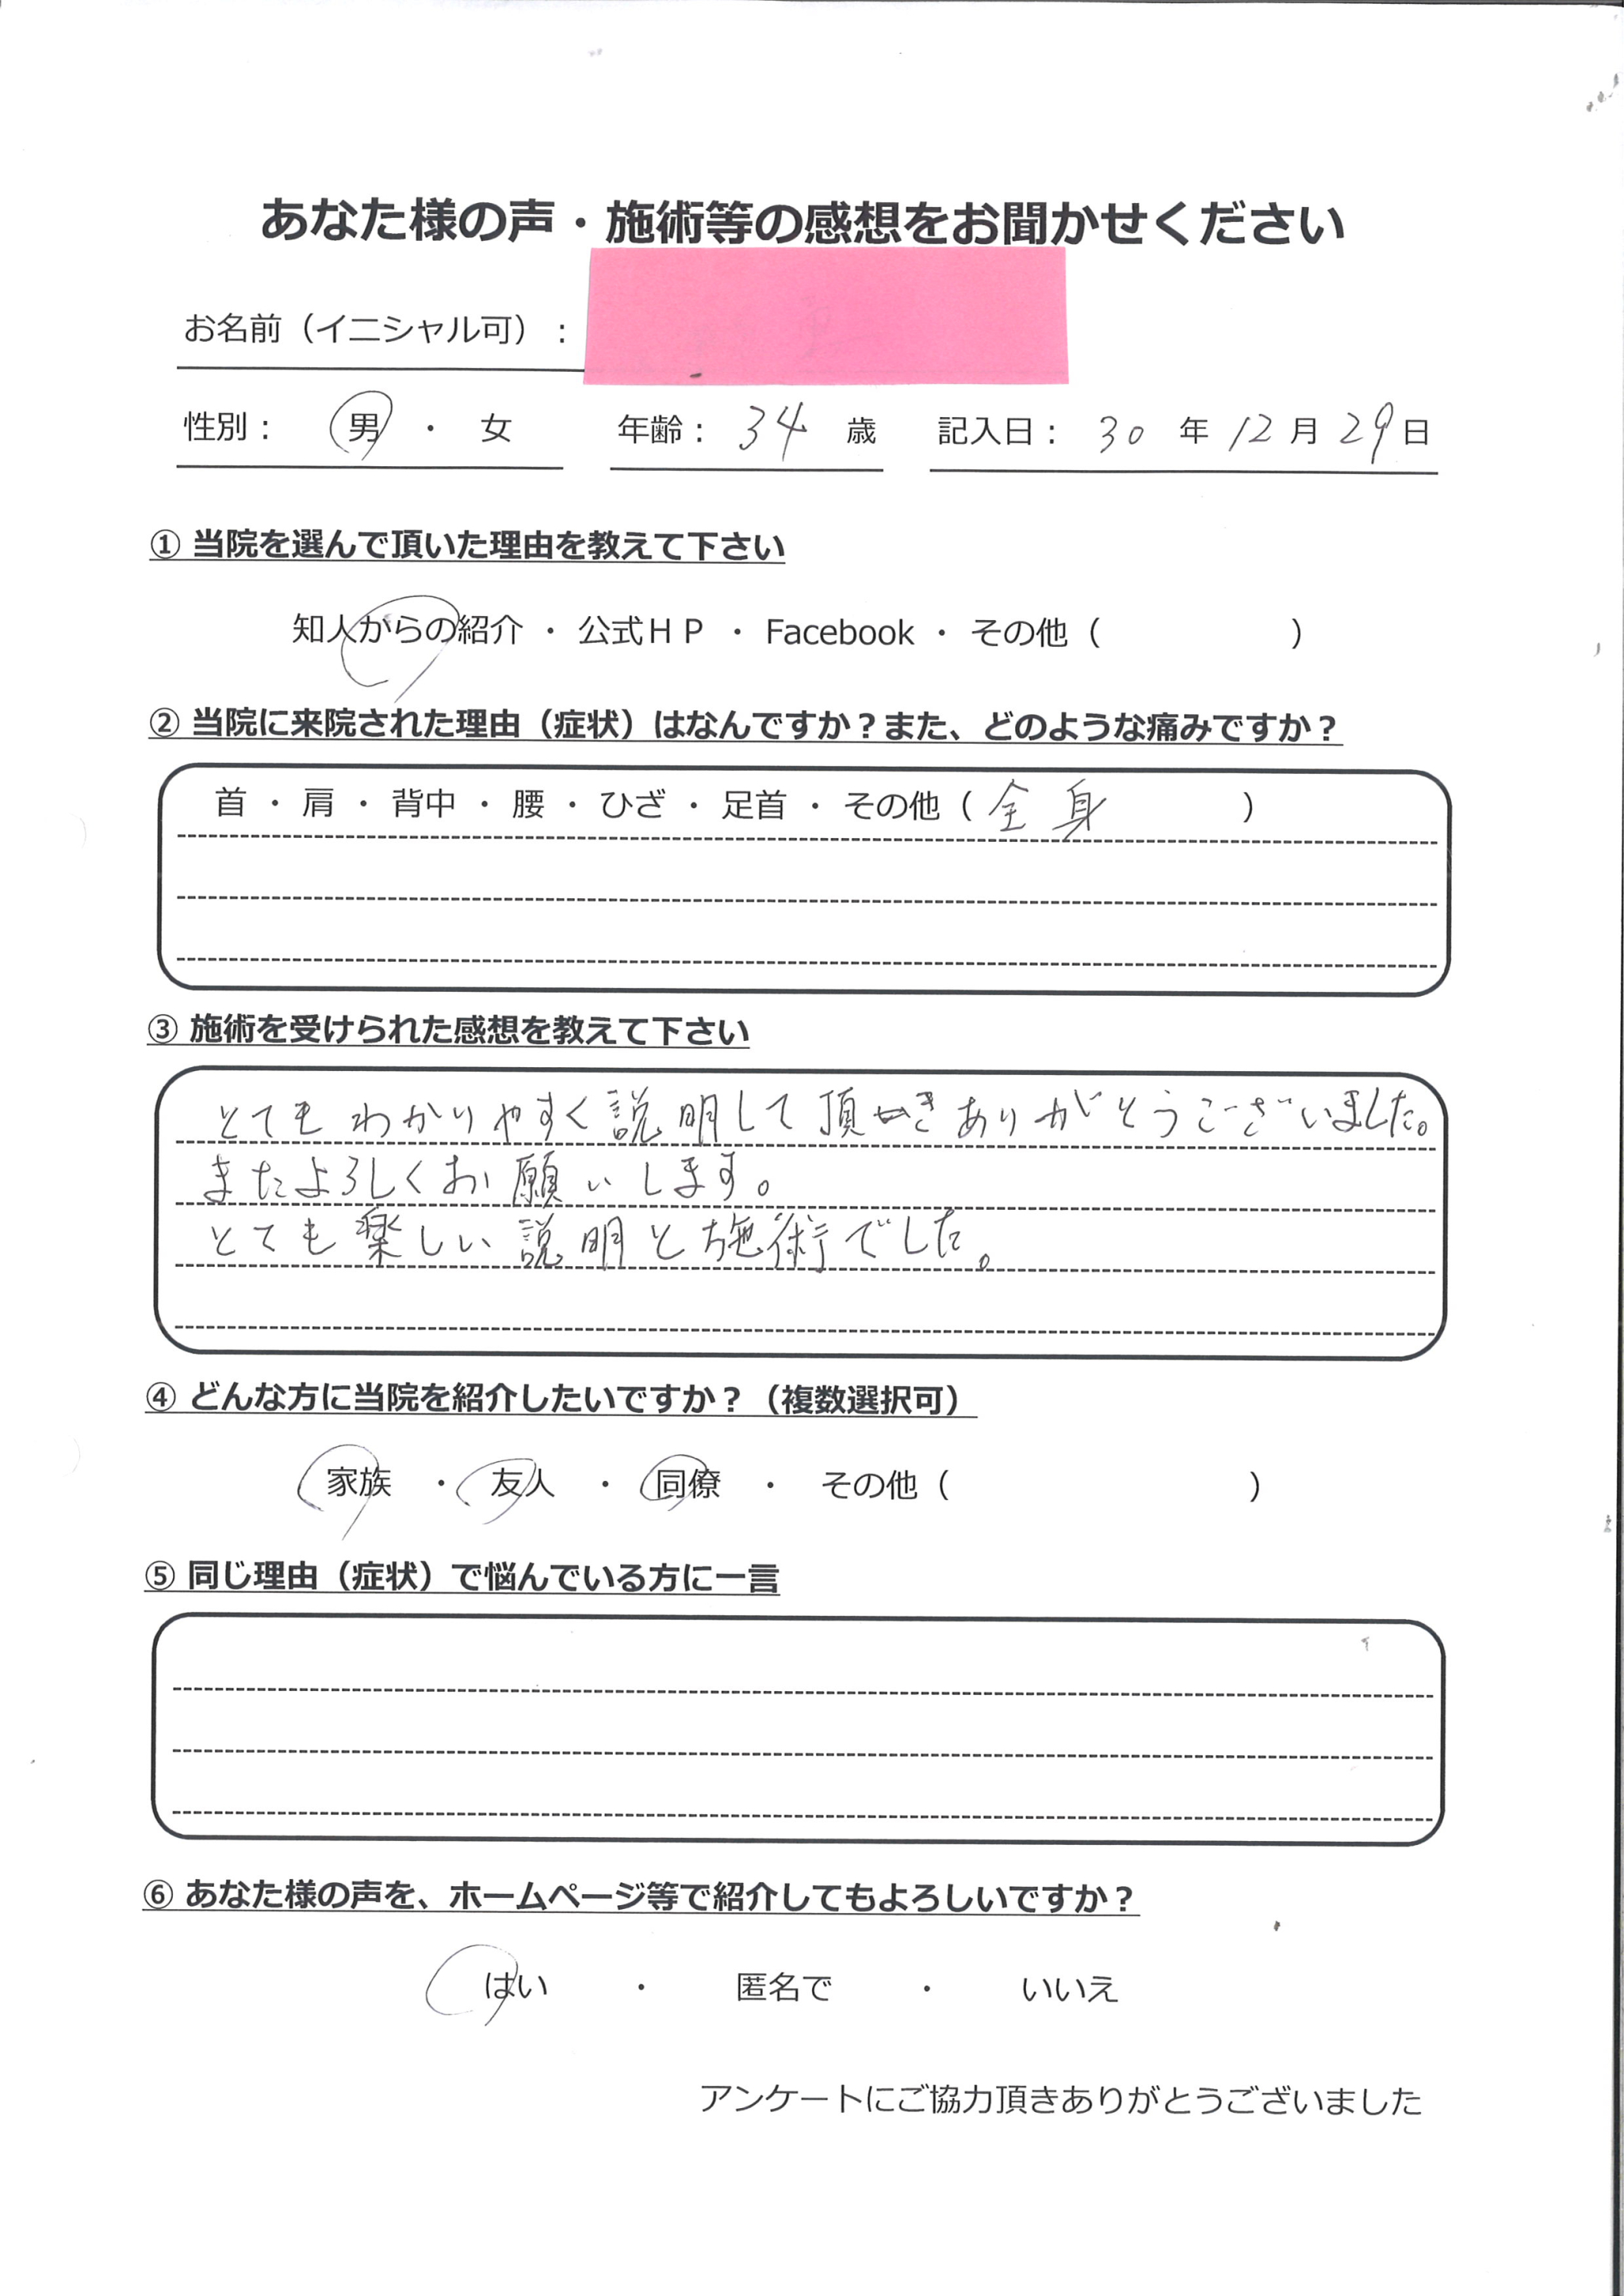 あなた様の声・施術等の感想をお聞かせください
お名前（イニシャル可）：
性別： 男 ・ 女 年齢： 34 歳 記入日： 30 年 12 月 29 日
① 当院を選んで頂いた理由を教えて下さい
知人からの紹介 ・ 公式ＨＰ ・ Facebook ・ その他（ ）
② 当院に来院された理由（症状）はなんですか？また、どのような痛みですか？
首 ・ 肩 ・ 背中 ・ 腰 ・ ひざ ・ 足首 ・ その他（ 全身 ）
③ 施術を受けられた感想を教えて下さい
とてもわかりやすく説明して頂きありがとうございました。
またよろしくお願いします。
とても楽しい説明と施術でした。
④ どんな方に当院を紹介したいですか？（複数選択可）
家族 ・ 友人 ・ 同僚 ・ その他（ ）
⑤ 同じ理由（症状）で悩んでいる方に一言
⑥ あなた様の声を、ホームページ等で紹介してもよろしいですか？
はい ・ 匿名で ・ いいえ
アンケートにご協力頂きありがとうございました